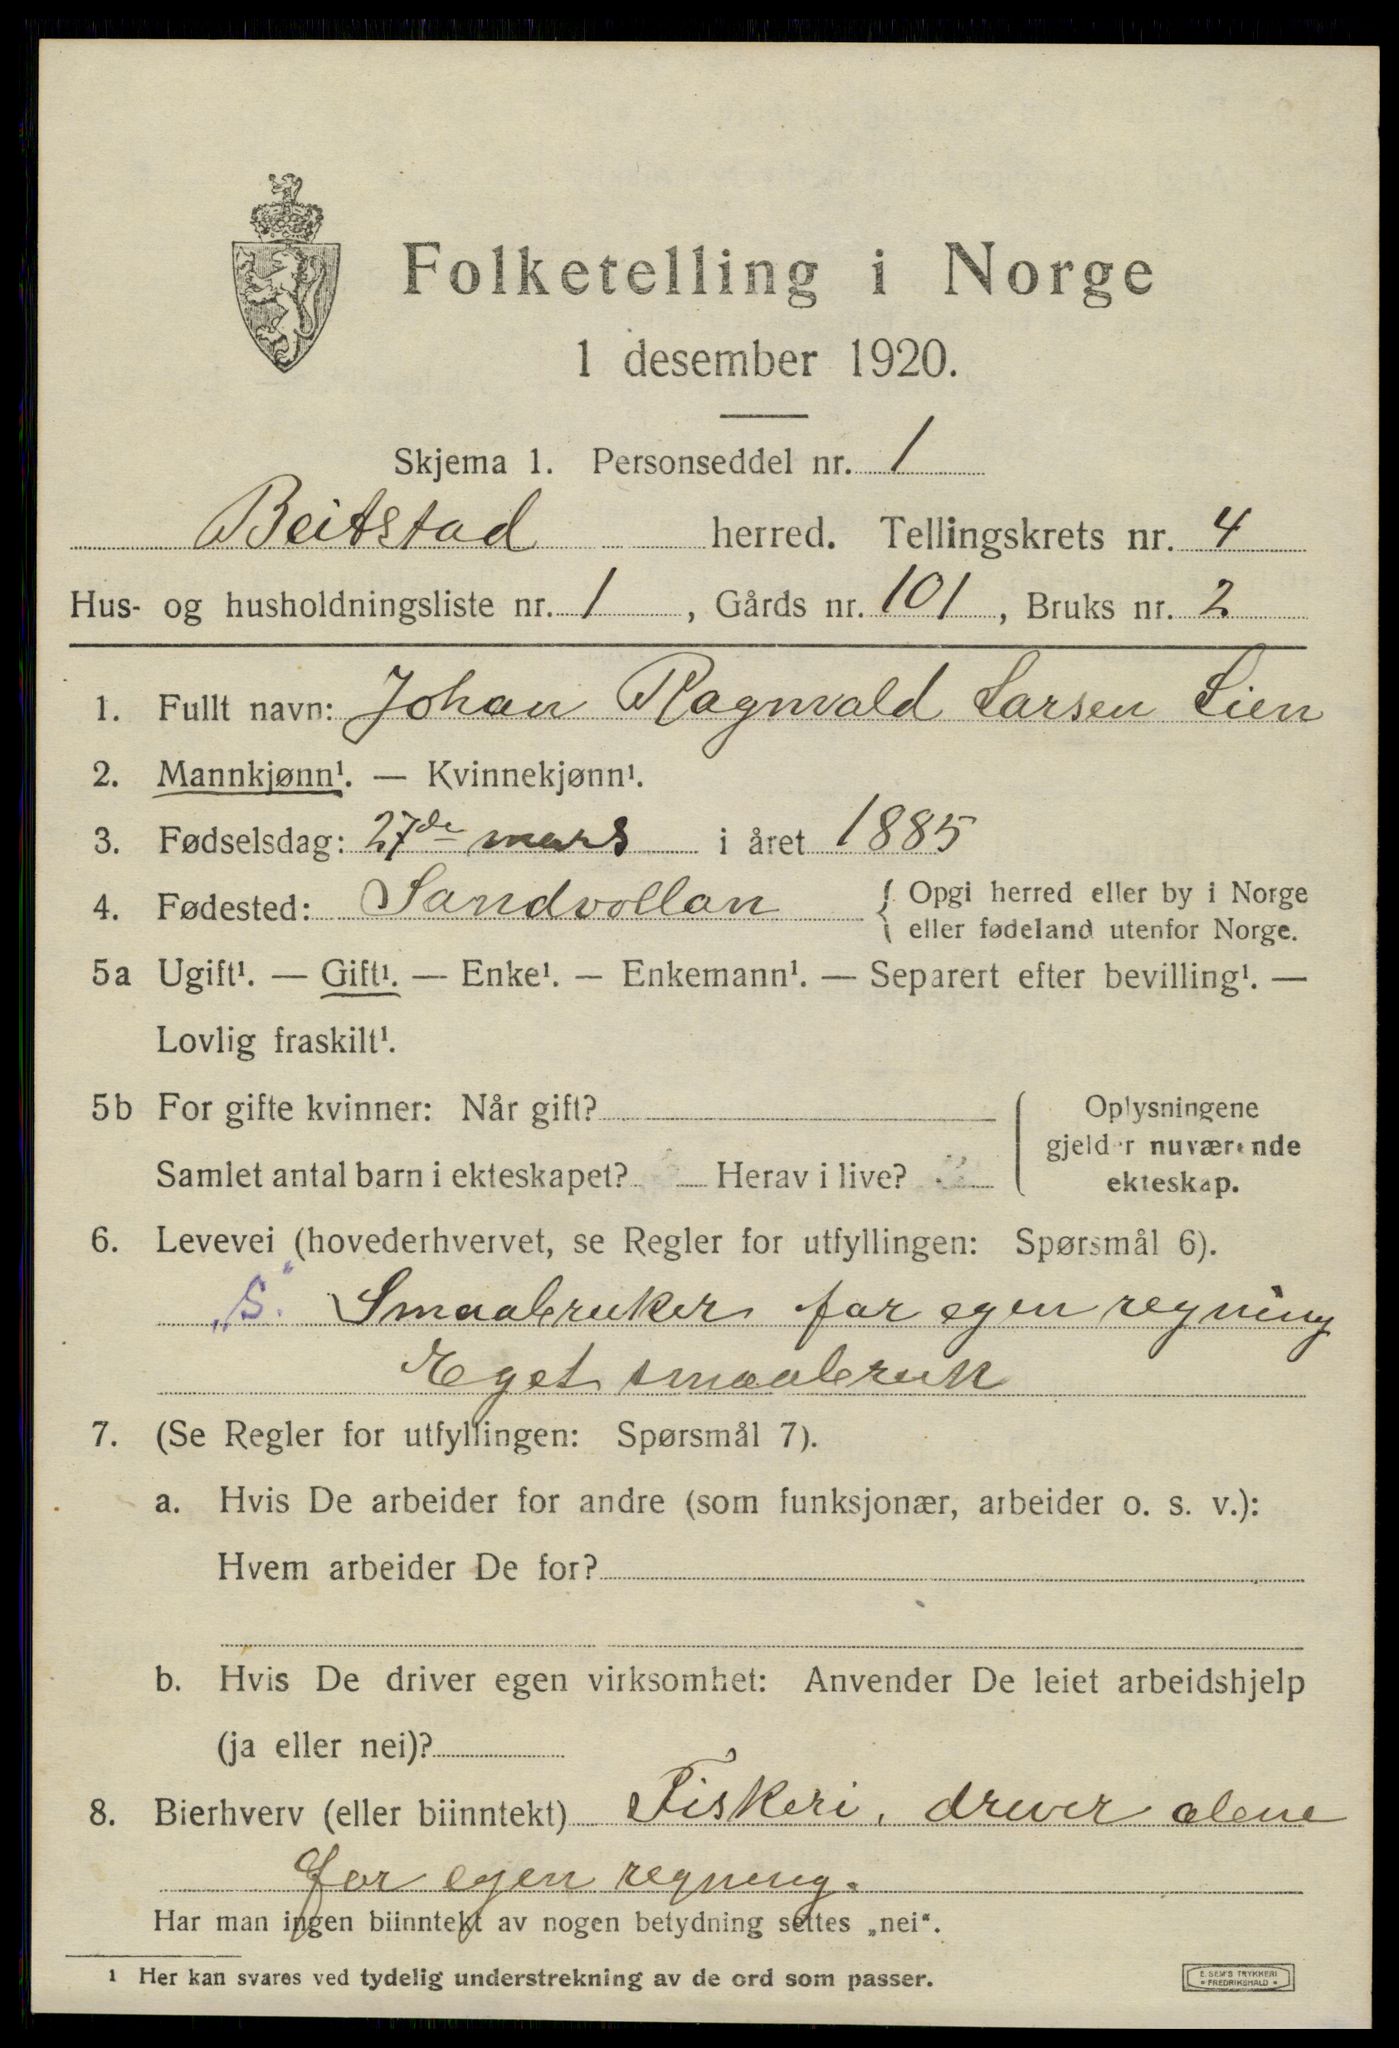 Folketelling i Norge
1 desember 1920.
Skjema 1. Personseddel nr. 1
Beitstad herred. Tellingskrets nr. 4
Hus- og husholdningsliste nr. 1, Gårds nr. 101, Bruks nr. 2
1. Fullt navn: Johan Ragnvald Larsen Lien
2. Mannkjønn¹. — Kvinnekjønn¹.
3. Fødselsdag: 27de mars i året 1885
4. Fødested: Sandvollan { Opgi herred eller by i Norge
eller fødeland utenfor Norge.
5a Ugift¹. — Gift¹. — Enke¹. — Enkemann¹. — Separert efter bevilling¹. —
Lovlig fraskilt¹.
5b For gifte kvinner: Når gift?
Samlet antal barn i ekteskapet? Herav i live?
Oplysningene
gjelder nuværende
ekteskap.
6. Levevei (hovederhvervet, se Regler for utfyllingen: Spørsmål 6).
„S." Smaabruker for egen regning
Eget smaabruk
7. (Se Regler for utfyllingen: Spørsmål 7).
a. Hvis De arbeider for andre (som funksjonær, arbeider o. s. v.):
Hvem arbeider De for?
b. Hvis De driver egen virksomhet: Anvender De leiet arbeidshjelp
(ja eller nei)?
8. Bierhverv (eller biinntekt) Fiskeri, drever alene
for egen regning.
Har man ingen biinntekt av nogen betydning settes „nei“.
¹ Her kan svares ved tydelig understrekning av de ord som passer.
E. SEM'S TRYKKERI
• FREDRIKSHALD •